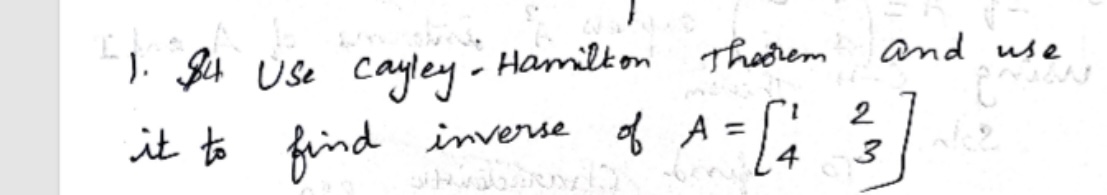 1. Use Cayley-Hamilton Theorem and use
it to find inverse of A = [1 2
4 3]